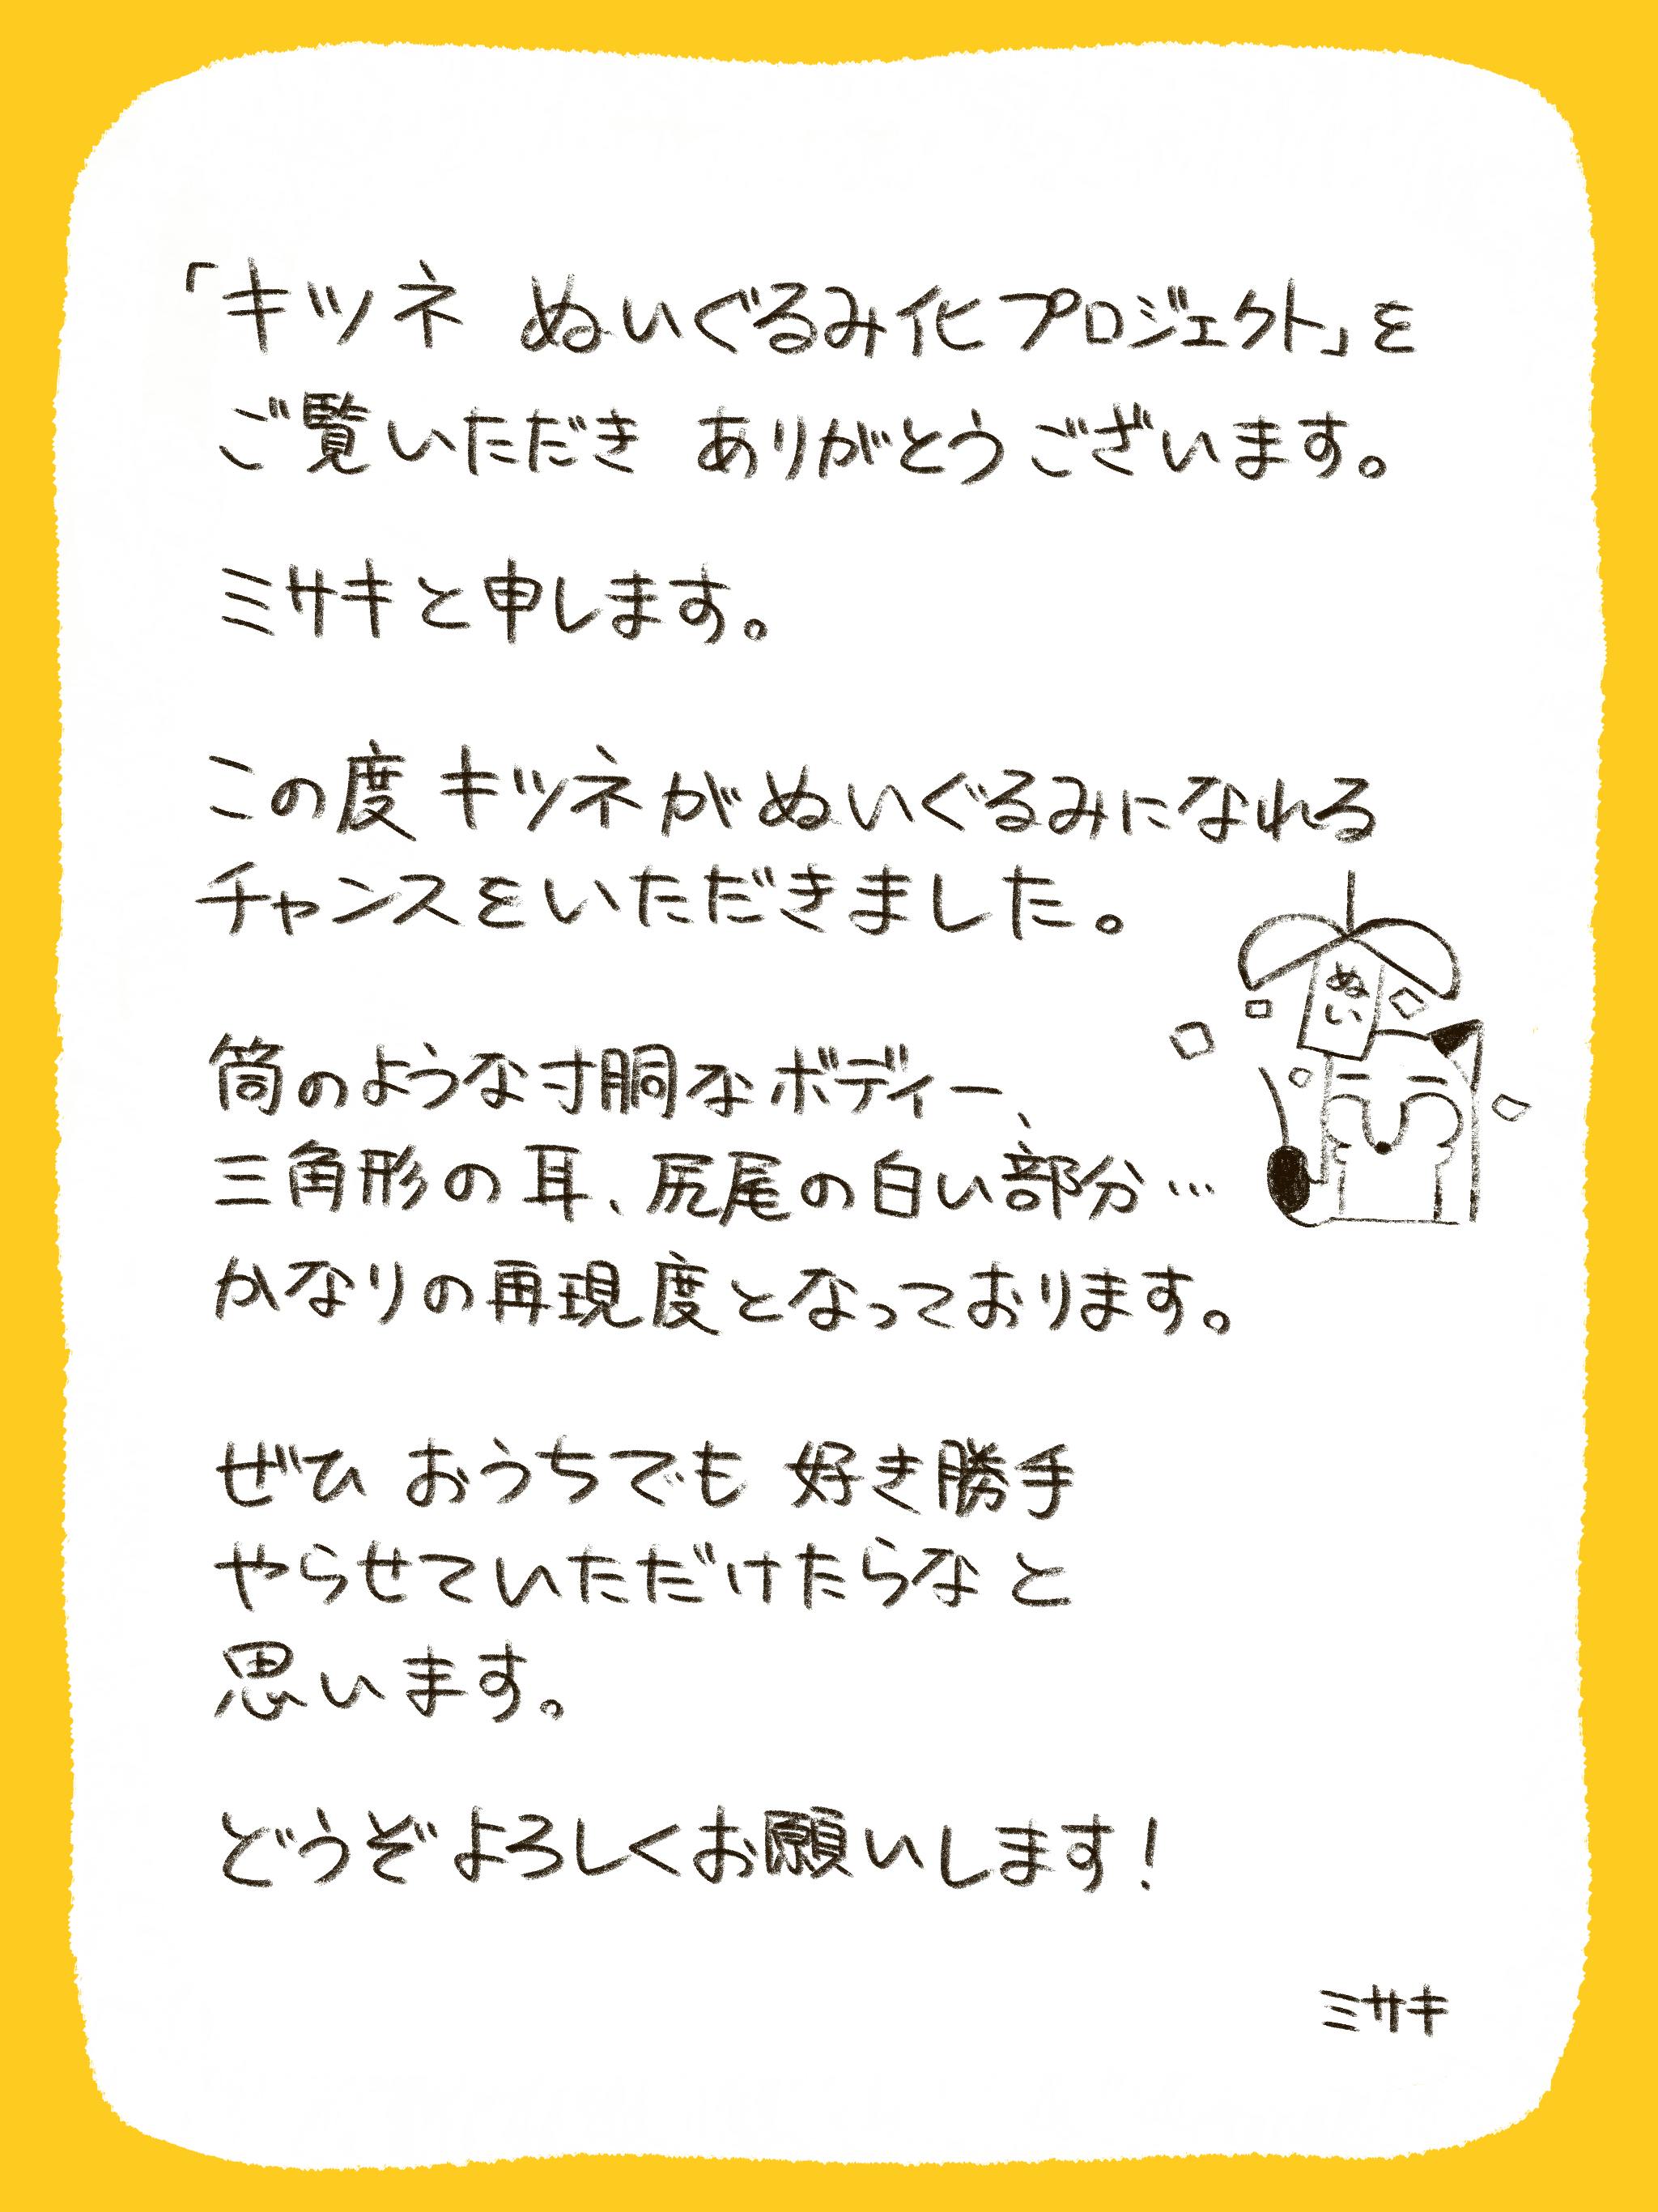 「キツネ ぬいぐるみ化プロジェクト」を
ご覧いただき ありがとうございます。
ミサキと申します。
この度 キツネがぬいぐるみになれる
チャンスをいただきました。
ぬい
筒のような寸胴なボディー、
三角形の耳、尻尾の白い部分…
かなりの再現度となっております。
ぜひ おうちでも 好き勝手
やらせていただけたらな と
思います。
どうぞよろしくお願いします!
ミサキ